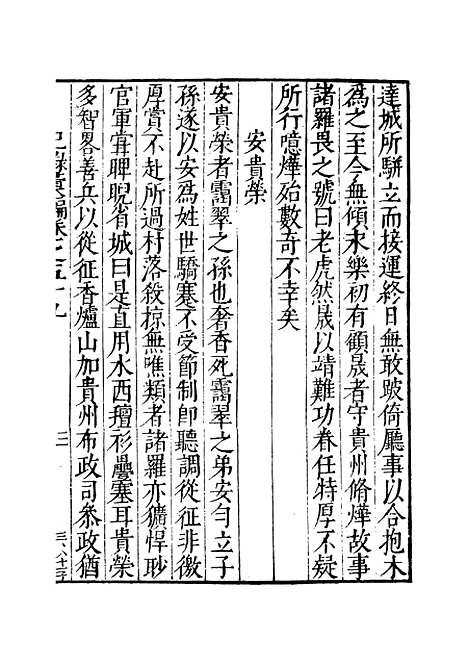 達城所駢立而接運終日無敢跛倚廳事以合抱木
為之至今無傾永樂初有顧晟者守貴州脩燁故事
諸羅畏之號曰老虎然晟以靖難功眷任特厚不疑
所行噫燁殆數奇不幸矣
安貴榮
安貴榮者靄翠之孫也奢香死靄翠之弟安勻立子
孫遂以安為姓世驕蹇不受節制即聽調從征非徼
厚賞不赴所過村落殺掠無噍類者諸羅亦獷悍眇
官軍甞睥睨省城曰是直用水西氊衫疊塞耳貴榮
多智畧善兵以從征香爐山加貴州布政司叅政猶
紀錄彙編卷之五十九
三